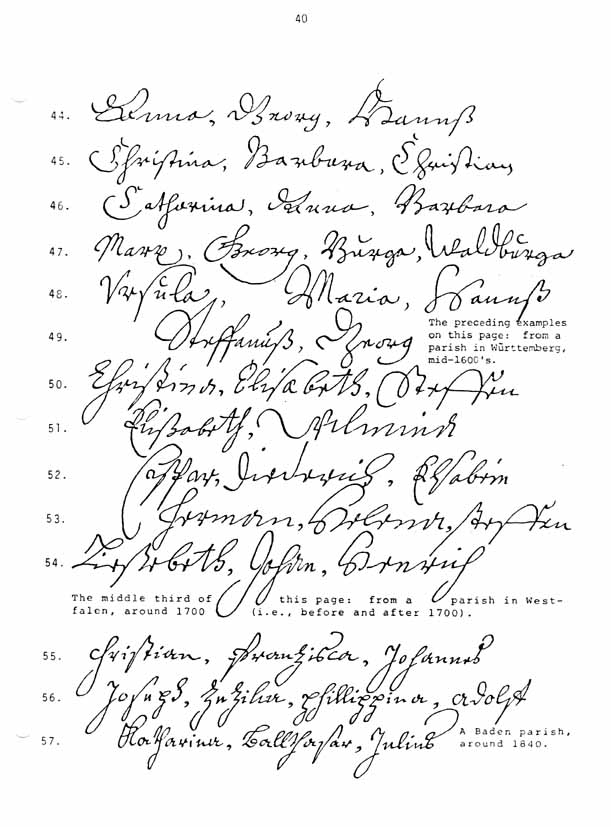 40
44. Anna, Georg, Hannß
45. Christina, Barbara, Christian
46. Catharina, Anna, Barbara
47. Marx, Georg, Burga, Waldburga
48. Vrsula, Maria, Hannß
The preceding examples
on this page: from a
parish in Württemberg,
mid-1600's.
49. Steffanuß, Georg
50. Christina, Elisabeth, Steffen
51. Elisabeth, Wilmina
52. Caspar, Diederich, Elsabein
53. Herman, Helena, Steffen
54. Ließebeth, Johan, Henrich
The middle third of this page: from a parish in West-
falen, around 1700 (i.e., before and after 1700).
55. Christian, Franzisca, Johannes
56. Joseph, Zezilia, Phillippina, Adolf
57. Katharina, Balthasar, Julius
A Baden parish,
around 1840.